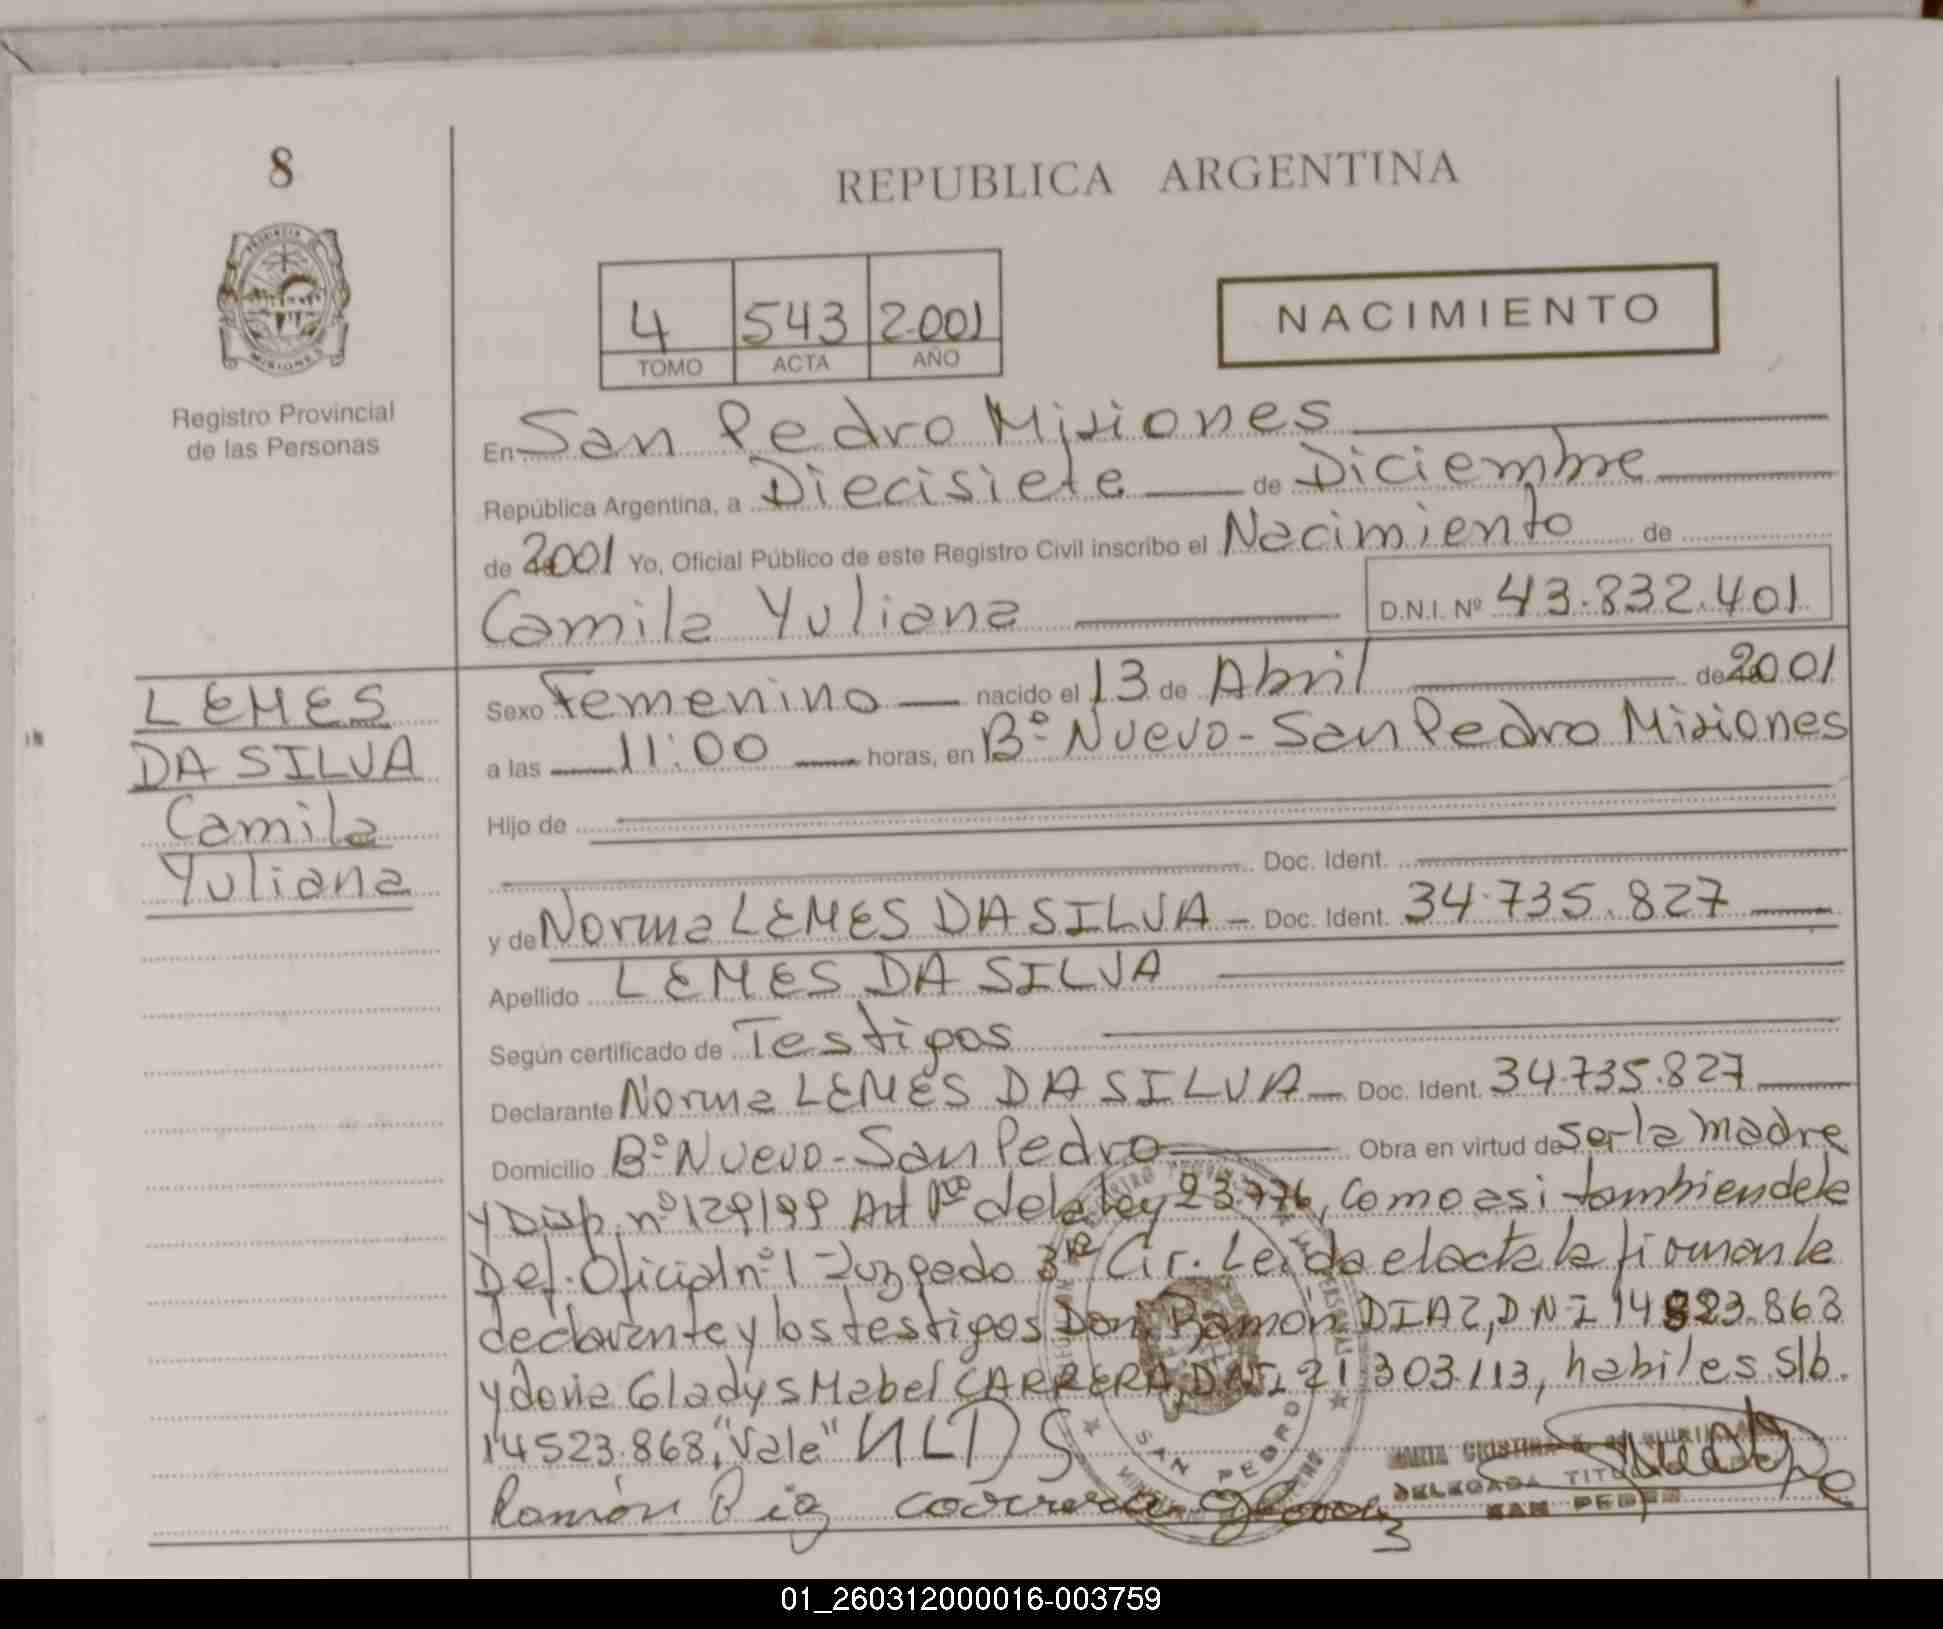 8
REPUBLICA ARGENTINA
PROVINCIA DE
MISIONES
Registro Provincial
de las Personas
4 543 2.001
TOMO ACTA AÑO
NACIMIENTO
En San Pedro Misiones
República Argentina, a Diecisiete de Diciembre
de 2001 Yo, Oficial Público de este Registro Civil inscribo el Nacimiento de
Camila Yuliana D.N.I. Nº 43.832.401
LEMES
DA SILVA
Camila
Yuliana
Sexo Femenino nacido el 13 de Abril de 2001
a las 11:00 horas, en Bº Nuevo - San Pedro Misiones
Hijo de
Doc. Ident.
y de Norma LEMES DA SILVA - Doc. Ident. 34.735.827
Apellido LEMES DA SILVA
Según certificado de Testigos
Declarante Norma LEMES DA SILVA - Doc. Ident. 34.735.827
Domicilio Bº Nuevo - San Pedro Obra en virtud de ser la madre
y Disp. nº 129/99 Art 1º de la ley 23.776, como asi tambien de la
Def. Oficial nº 1 Juzgado 3ra Cir. Leida el acta la firman la
declarante y los testigos Don Ramón DIAZ, DNI 14823.868
y doña Gladys Mabel CARRERA, DNI 21303.113, habiles. S/b.
14523.868, "Vale" NLDS
Ramón Diaz Carrera
SAN PEDRO
DELEGADA TITULAR
SAN PEDRO
01_260312000016-003759